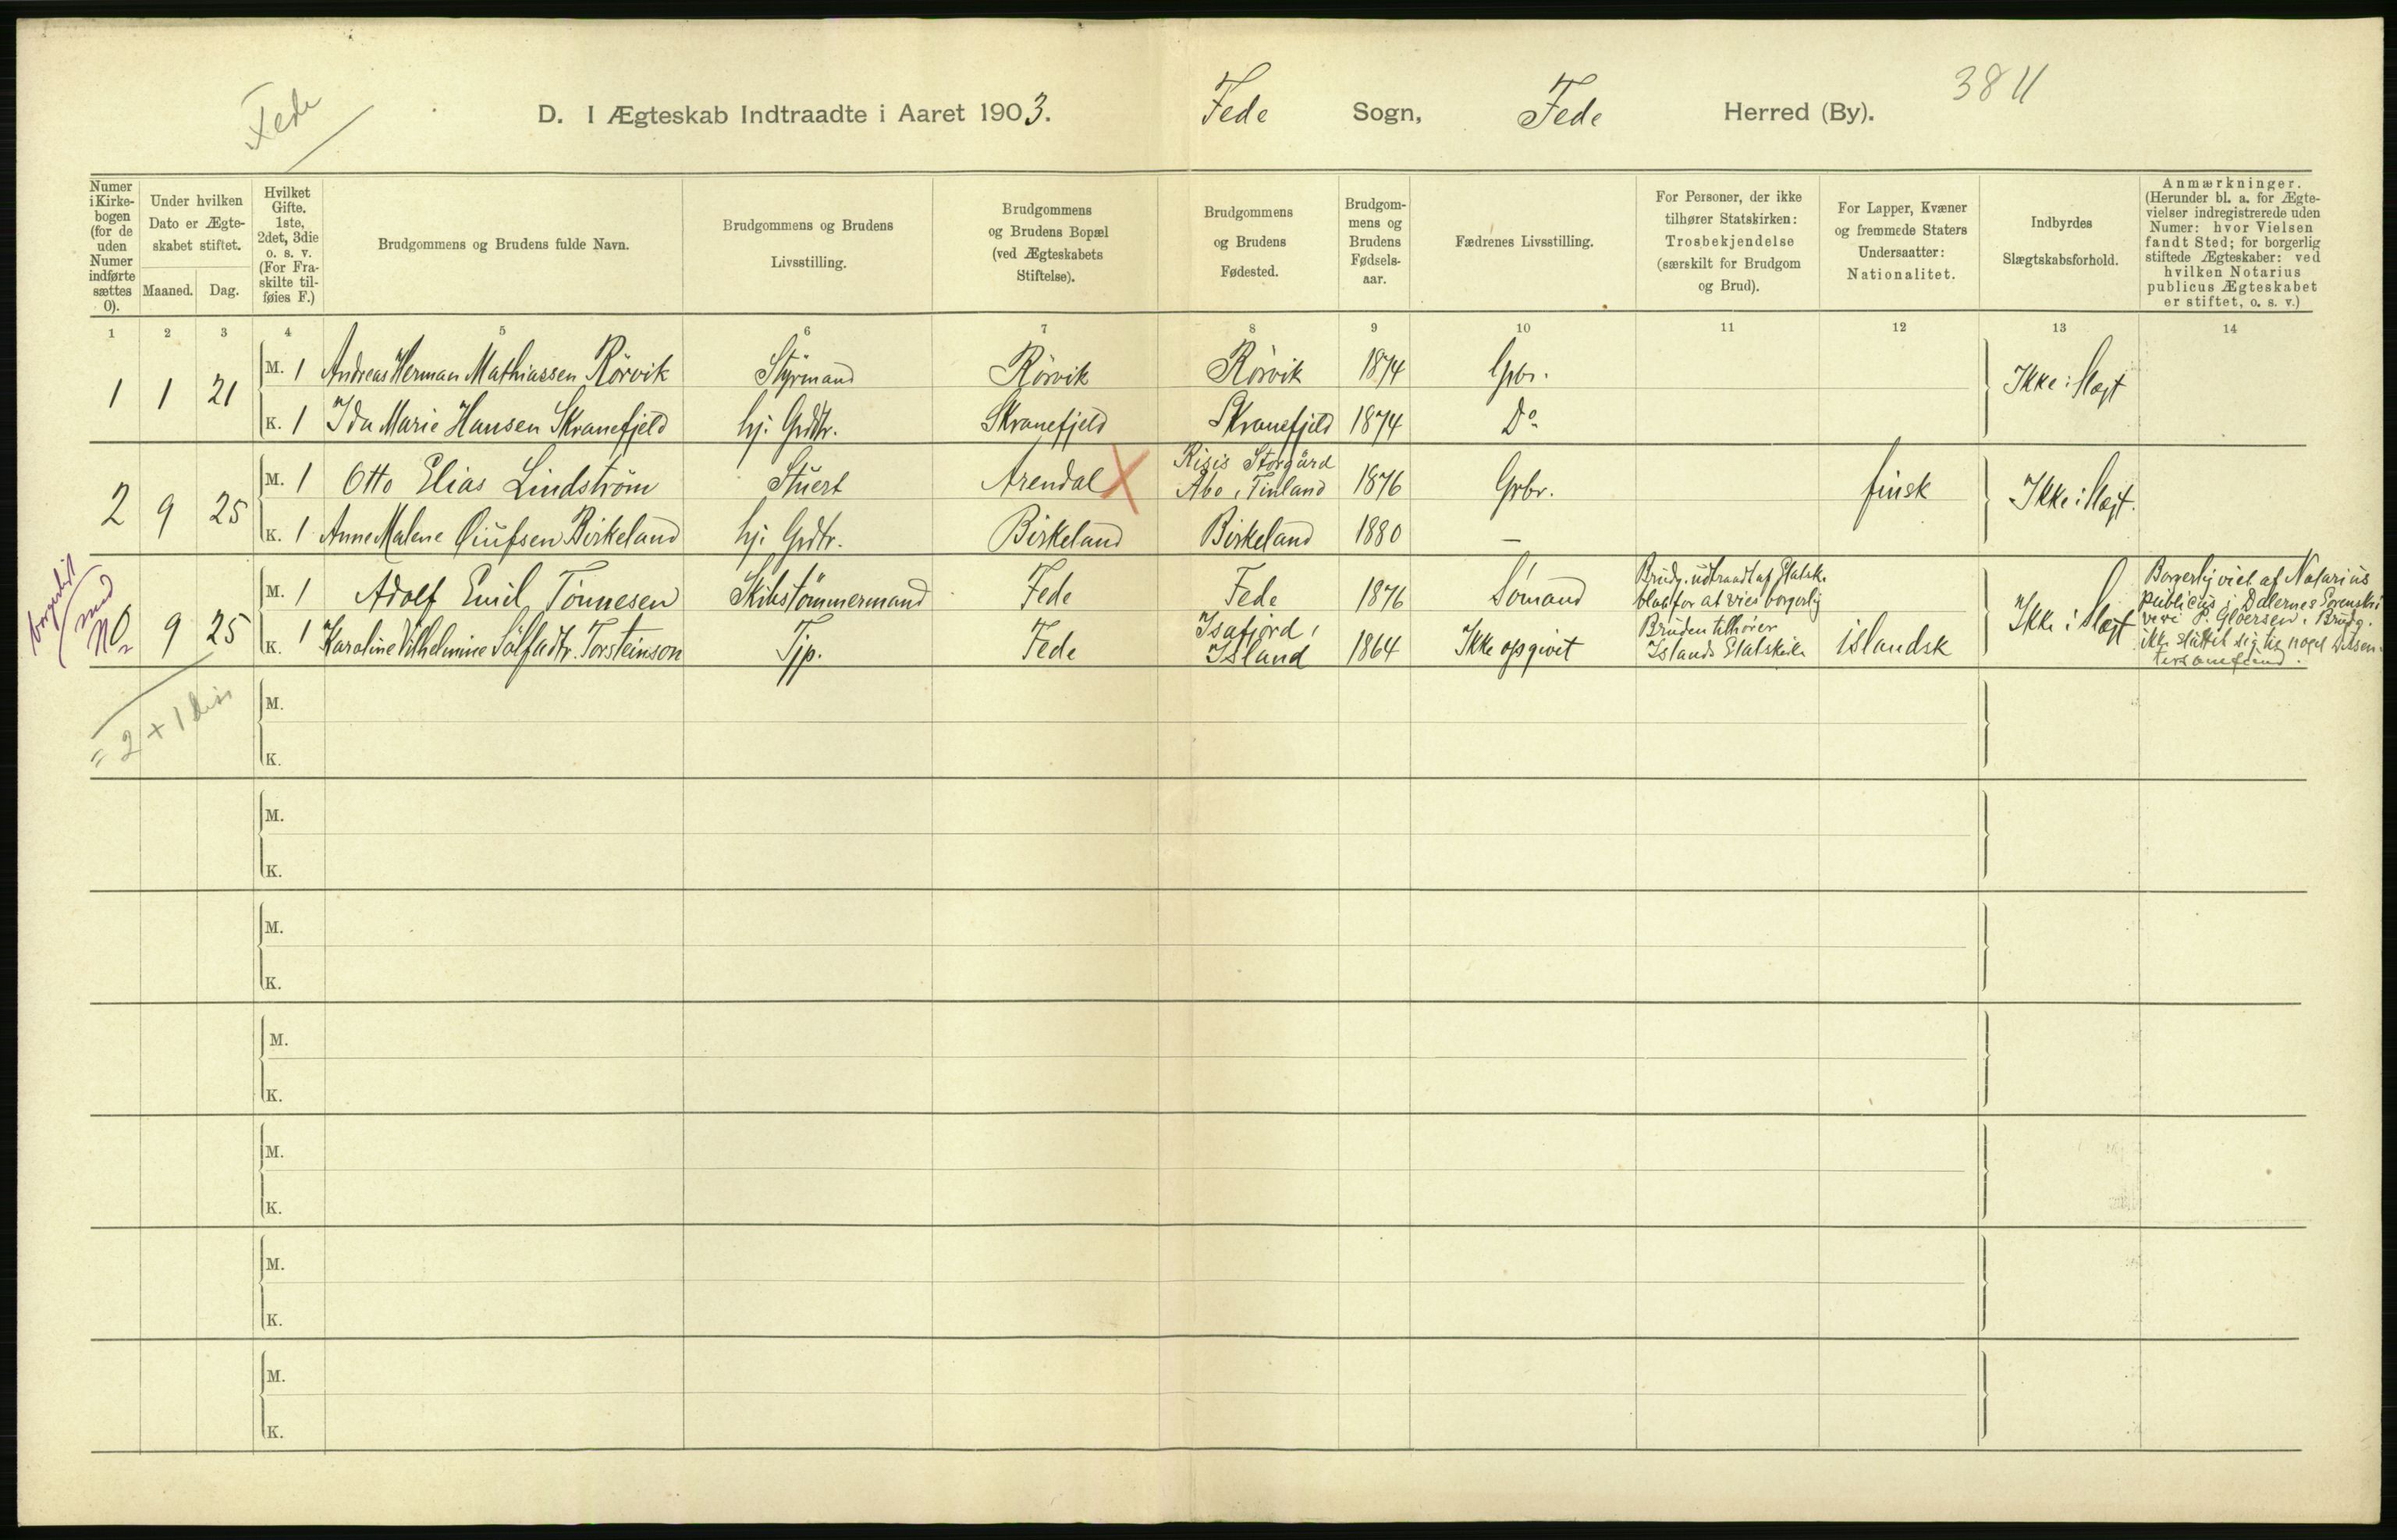 Fede
D. I Ægteskab Indtraadte i Aaret 1903. Fede Sogn, Fede Herred (By). 3811
Numer i Kirke-bogen (for de uden Numer indførte sættes 0).
Under hvilken Dato er Ægte-skabet stiftet.
Maaned. Dag.
Hvilket Gifte. 1ste, 2det, 3die o. s. v. (For Fra-skilte til-føies F.)
Brudgommens og Brudens fulde Navn.
Brudgommens og Brudens Livsstilling.
Brudgommens og Brudens Bopæl (ved Ægteskabets Stiftelse).
Brudgommens og Brudens Fødested.
Brudgom-mens og Brudens Fødsels-aar.
Fædrenes Livsstilling.
For Personer, der ikke tilhører Statskirken: Trosbekjendelse (særskilt for Brudgom og Brud).
For Lapper, Kvæner og fremmede Staters Undersaatter: Nationalitet.
Indbyrdes Slægtskabsforhold.
Anmærkninger. (Herunder bl. a. for Ægte-vielser indregistrerede uden Numer: hvor Vielsen fandt Sted; for borgerlig stiftede Ægteskaber: ved hvilken Notarius publicus Ægteskabet er stiftet, o. s. v.)
1 2 3 4 5 6 7 8 9 10 11 12 13 14
1 1 21 M. 1 Andreas Herman Mathiassen Rörvik Styrmand Rörvik Rörvik 1874 Gbr. Ikke i Slægt
K. 1 Ida Marie Hansen Skranefjeld hj. Grdtr. Skranefjeld Skranefjeld 1874 Do
2 9 25 M. 1 Otto Elias Lindström Stuert Arendal X Risis Storgård Åbo, Finland 1876 Grbr. finsk Ikke i Slægt.
K. 1 Anne Malene Birkeland hj. Grdtr. Birkeland Birkeland 1880 –
borgerligt
No 9 25 M. 1 Adolf Emil Tönnesen Skibstömmermand Fede Fede 1876 Sömand Brudg. udtraadt af Statsk. blot for at vies borgerlig Ikke i Slægt Borgerlig viet af Notarius publicus i Dalernes Sorenskriveri P. Gloersen. Brudg. ikke sluttet sig til noget Dissentersamfund.
K. 1 Karoline Vilhelmine Sölfadtr. Torsteinson Tjp. Fede Isafjord, Island 1864 Ikke opgivet Bruden tilhører Islands Statskirke islandsk
= 2 + 1 diss
M.
K.
M.
K.
M.
K.
M.
K.
M.
K.
M.
K.
M.
K.